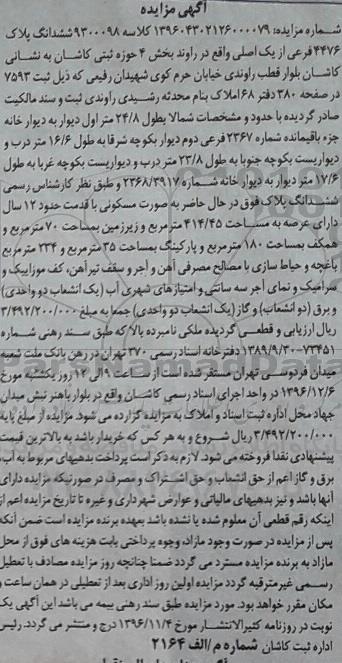 آگهی مزایده
شماره مزایده: ۱۳۹۶۰۴۳۰۲۱۲۶۰۰۰۰۷۹ کلاسه ۹۳۰۰۰۹۸ ششدانگ پلاک
۴۴۷۶ فرعی از یک اصلی واقع در راوند بخش ۴ حوزه ثبتی کاشان به نشانی
کاشان بلوار قطب راوندی خیابان حرم کوی شهیدان رفیعی که ذیل ثبت ۷۵۹۳
در صفحه ۳۸۰ دفتر ۶۸ املاک بنام محدثه رشیدی راوندی ثبت و سند مالکیت
صادر گردیده با حدود و مشخصات شمالا بطول ۲۴/۸ متر اول دیوار به دیوار خانه
جزء باقیمانده شماره ۲۳۶۷ فرعی دوم دیوار بکوچه شرقا به طول ۱۶/۶ متر درب و
دیواریست بکوچه جنوبا به طول ۲۳/۸ متر درب و دیواریست بکوچه غربا به طول
۱۷/۶ متر دیوار به دیوار خانه شماره ۲۳۶۸/۳۹۱۷ و طبق نظر کارشناس رسمی
ششدانگ پلاک فوق در حال حاضر به صورت مسکونی با قدمت حدود ۱۲ سال
دارای عرصه به مساحت ۴۱۴/۴۵ مترمربع و زیرزمین بمساحت ۷۰ مترمربع و
همکف بمساحت ۱۸۰ مترمربع و پارکینگ بمساحت ۳۵ مترمربع و ۲۳۴ مترمربع
باغچه و حیاط سازی با مصالح مصرفی آهن و آجر و سقف تیرآهن، کف موزاییک و
سرامیک و نمای آجر سه سانتی و امتیازهای شهری آب (یک انشعاب دو واحدی)
و برق (دو انشعاب) و گاز (یک انشعاب دو واحدی) جمعا به مبلغ ۳/۴۹۲/۲۰۰/۰۰۰
ریال ارزیابی و قطعی گردیده ملکی نامبرده بالا که طبق سند رهنی شماره
۷۳۴۵۱-۱۳۸۹/۹/۳۰ دفترخانه اسناد رسمی ۳۷۰ تهران در رهن بانک ملت شعبه
میدان فردوسی تهران مستقر شده است از ساعت ۹ الی ۱۲ روز یکشنبه مورخ
۱۳۹۶/۱۲/۶ در واحد اجرای اسناد رسمی کاشان واقع در بلوار باهنر نبش میدان
جهاد محل اداره ثبت اسناد و املاک به مزایده گزارده می شود. مزایده از مبلغ پایه
۳/۴۹۲/۲۰۰/۰۰۰ ریال شروع و به هر کس که خریدار باشد به بالاترین قیمت
پیشنهادی نقدا فروخته می شود. لازم به ذکر است پرداخت بدهیهای مربوط به آب،
برق و گاز اعم از حق انشعاب و حق اشتراک و مصرف در صورتیکه مزایده دارای
آنها باشد و نیز بدهیهای مالیاتی و عوارض شهرداری و غیره تا تاریخ مزایده اعم از
اینکه رقم قطعی آن معلوم شده یا نشده باشد بعهده برنده مزایده است ضمن آنکه
پس از مزایده در صورت وجود مازاد، وجوه پرداختی بابت هزینه های فوق از محل
مازاد به برنده مزایده مسترد می گردد ضمنا چنانچه روز مزایده مصادف با تعطیل
رسمی غیرمترقبه گردد مزایده اولین روز اداری بعد از تعطیلی در همان ساعت و
مکان مقرر خواهد بود. مورد مزایده طبق سند رهنی بیمه می باشد این آگهی یک
نوبت در روزنامه کثیرالانتشار مورخ ۱۳۹۶/۱۱/۴ درج و منتشر می گردد. رئیس
اداره ثبت کاشان شماره م/الف ۲۱۶۴